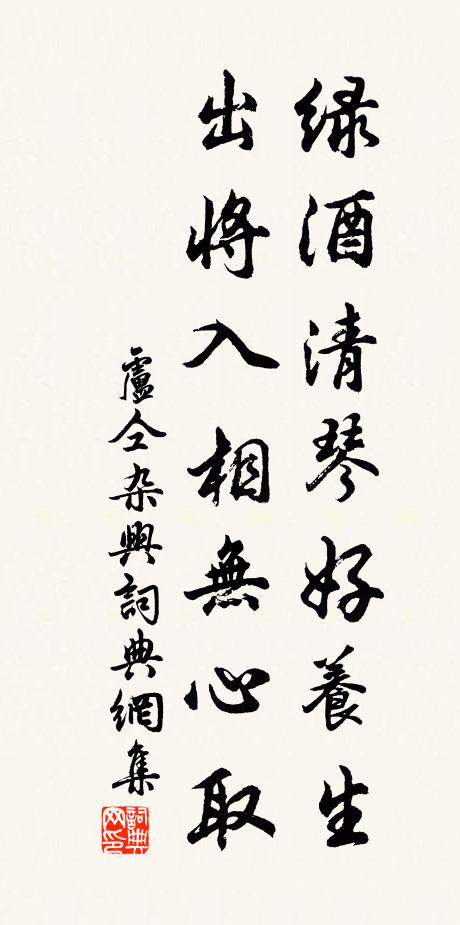 緑酒清琴好養生
出將入相無心取
盧仝杂興詞典網集
詞典网印